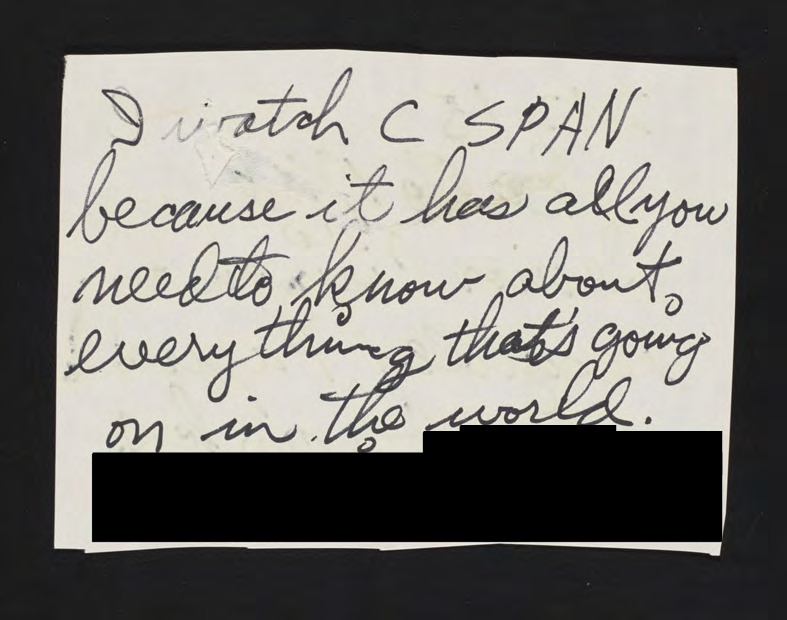 I watch C SPAN
because it has all you
need to know about
everything that's going
on in the world.